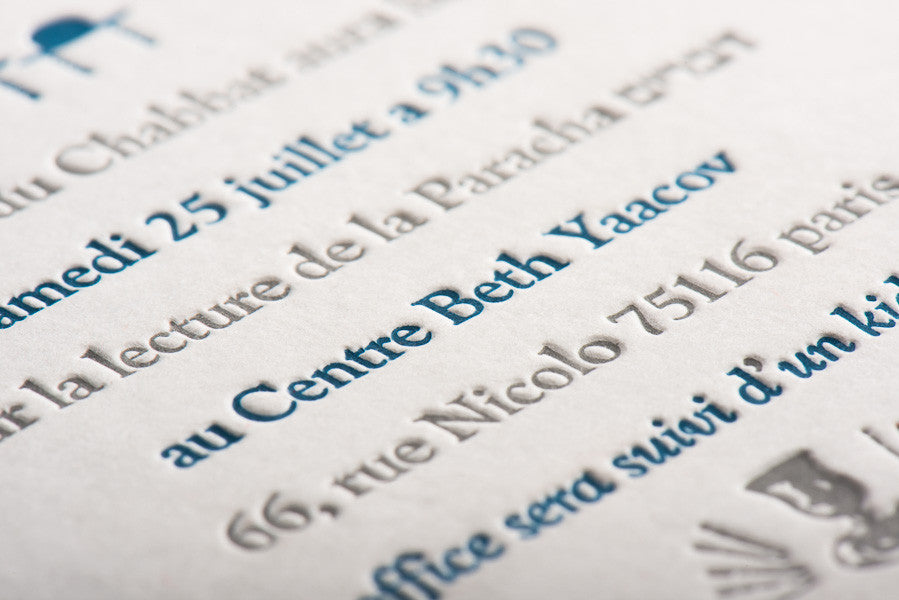 du Chabbat aura
samedi 25 juillet a 9h30
la lecture de la Paracha דברים
au Centre Beth Yaacov
66, rue Nicolo 75116 paris
office sera suivi d'un